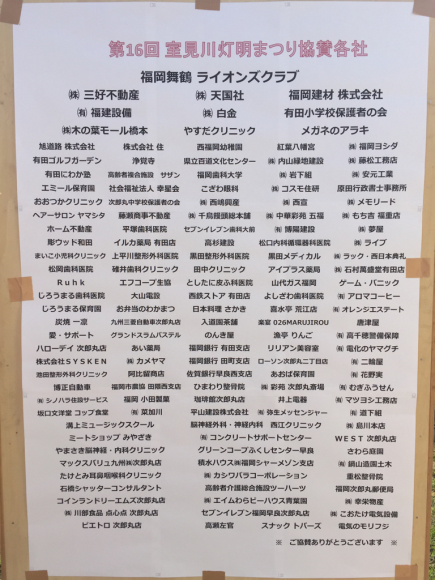 第16回 室見川灯明まつり協賛各社
福岡舞鶴 ライオンズクラブ
㈱ 三好不動産 ㈱ 天国社 福岡建材 株式会社
㈲ 福建設備 ㈱ 白金 有田小学校保護者の会
㈱木の葉モール橋本 やすだクリニック メガネのアラキ
旭道路 株式会社 株式会社 住 西福岡幼稚園 紅葉八幡宮 ㈱ 福岡ヨシダ
有田ゴルフガーデン 浄覚寺 県立百道文化センター ㈱ 内山緑地建設 ㈱ 藤松工務店
有田にわか塾 高齢者複合施設 サザン 福岡歯科大学 ㈱ 岩下組 ㈱ 安元工業
エミール保育園 社会福祉法人 幸星会 こざわ眼科 ㈱ コスモ住研 原田行政書士事務所
おおつかクリニック ㈲ 中央興産 ㈱ 西嶋興産 ㈱ 西宣 ㈱ メモリード
ヘアーサロン ヤマシタ 藤瀬商事不動産 ㈱ 千鳥饅頭総本舗 ㈱ 中華彩苑 五福 ㈱ もち吉 福重店
ホーム不動産 平塚歯科医院 セブンイレブン歯科大前 ㈲ 博陽建設 ㈱ 夢屋
彫ウッド和田 イルカ薬局 有田店 高杉建設 松口内科循環器科医院 ㈱ ライブ
まいこ小児科クリニック 上平川整形外科医院 黒田整形外科医院 黒田メディカル ㈱ ラック・西日本典礼
松岡歯科医院 碓井歯科クリニック 田中クリニック アイプラス薬局 ㈱ 石村萬盛堂有田店
Ｒｕｈｋ エフコープ生協 としたに皮ふ科医院 山代ガス福岡 ゲーム・パニック
じろうまる歯科医院 大山電設 西鉄ストア 有田店 よしざわ歯科医院 ㈲ アロマコーヒー
じろうまる保育園 お弁当のわかまつ 日本料理 さかき 喜水亭 荒江店 ㈲ オレンジエステート
炭焼 一凛 九州三菱自動車次郎丸店 入道園茶舗 楽宴 026MARUJIROU 唐津屋
愛・サポート グランドスラムパステル のんき屋 漁亭 りんご ㈲ 高千穂警備保障
ハローデイ 次郎丸店 あい薬局 福岡銀行 有田支店 リリアン美容室 ㈲ 電化のヤマグチ
株式会社ＳＹＳＫＥＮ ㈱ カメヤマ 福岡銀行 田町支店 ローソン次郎丸二丁目店 ㈲ 二輪屋
池田整形外科クリニック 阿比留商店 佐賀銀行早良西支店 あおば保育園 ㈲ 花野実
博正自動車 福岡市農協 田隈西支店 ひまわり整骨院 ㈱ 彩苑 次郎丸斎場 ㈲ むぎふうせん
㈲ シノハラ住設サービス 福岡 小田製菓 珈琲館次郎丸店 井上電器 ㈲ マツヨシ工務店
坂口文洋堂 コップ食堂 ㈲ 菜加川 平山建設株式会社 ㈲ 弥生メッセンジャー ㈲ 道下組
溝上ミュージックスクール 脳神経外科・神経内科 西江クリニック ㈱ 島川本店
ミートショップ みやざき ㈲ コンクリートサポートセンター ＷＥＳＴ 次郎丸店
やまさき脳神経・内科クリニック グリーンコープふくしセンター早良 さわら庭園
マックスバリュ九州㈱次郎丸店 積水ハウス㈱福岡シャーメゾン支店 ㈲ 鍋山造園土木
たけとみ耳鼻咽喉科クリニック ㈱ カシワバラコーポレーション 重松整骨院
石橋シャッターコンサルタント 高齢者介護総合施設ツーハーツ 福岡次郎丸郵便局
コインランドリーエムズ次郎丸店 ㈱ エイムわらビーハウス青葉園 ㈱ 幸栄物産
㈱ 川部食品 点心点 次郎丸店 セブンイレブン福岡早良次郎丸店 ㈱ こおたけ電気設備
ピエトロ 次郎丸店 高瀬左官 スナック トパーズ 電気のモリフジ
※ ご協賛ありがとうございます ※